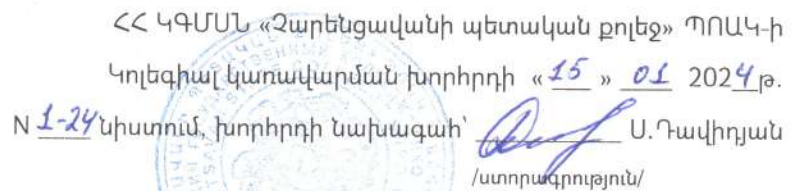 ՀՀ ԿԳՄՍՆ «Չարենցավանի պետական քոլեջ» ՊՈԱԿ-ի
Կոլեգիալ կառավարման խորհրդի « 15 » 01 2024թ.
N 1-24 նիստում, խորհրդի նախագահ՝ Ս.Դավիդյան
/ստորագրություն/